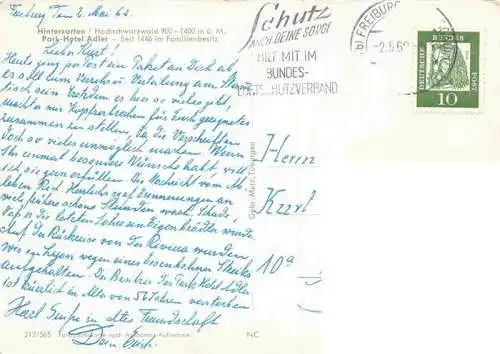 Freiburg den 2. Mai 62.
Hinterzarten / Hochschwarzwald 900-1400 m ü. M.
Park-Hotel Adler - Seit 1446 im Familienbesitz
Lieber Kurt!
Heute ging per Post ein Paket an Dich ab,
es soll zum
sein. Trotzdem es hier so vieles gibt,
macht mir Kopfzerbrechen für Euch geeignetes
zusammen zu stellen, da die Vorschriften
doch so vieles unmöglich machen. Wenn
Ihr einmal besondere Wünsche habt, will
ich sie gern erfüllen. Die Nachricht vom
leben Rich. Henrichs rief Erinnerungen an
viele frühere schöne Stunden wach. Schade,
daß er die letzten Jahre ein Eigenbrödler wurde.
Auf der Rückreise von der Riviera wurden
wir in Lyon wegen eines Eisenbahner Streiks
aufgehalten. Der Besitzer des Park Hotel Adler
ist kürzlich im Alter von 56 Jahren verstorben
Herzl. Grüße in alter Freundschaft
Dein Erich.
212/565
NC
Gebr. Metz, Tübingen
Schutz
AUCH DEINE SORGE
HILF MIT IM
BUNDES-
LUFTSCHUTZVERBAND
FREIBURG
-2.5.62
DÜRER
DEUTSCHE BUNDESPOST
10
Herrn
Kurt
10a